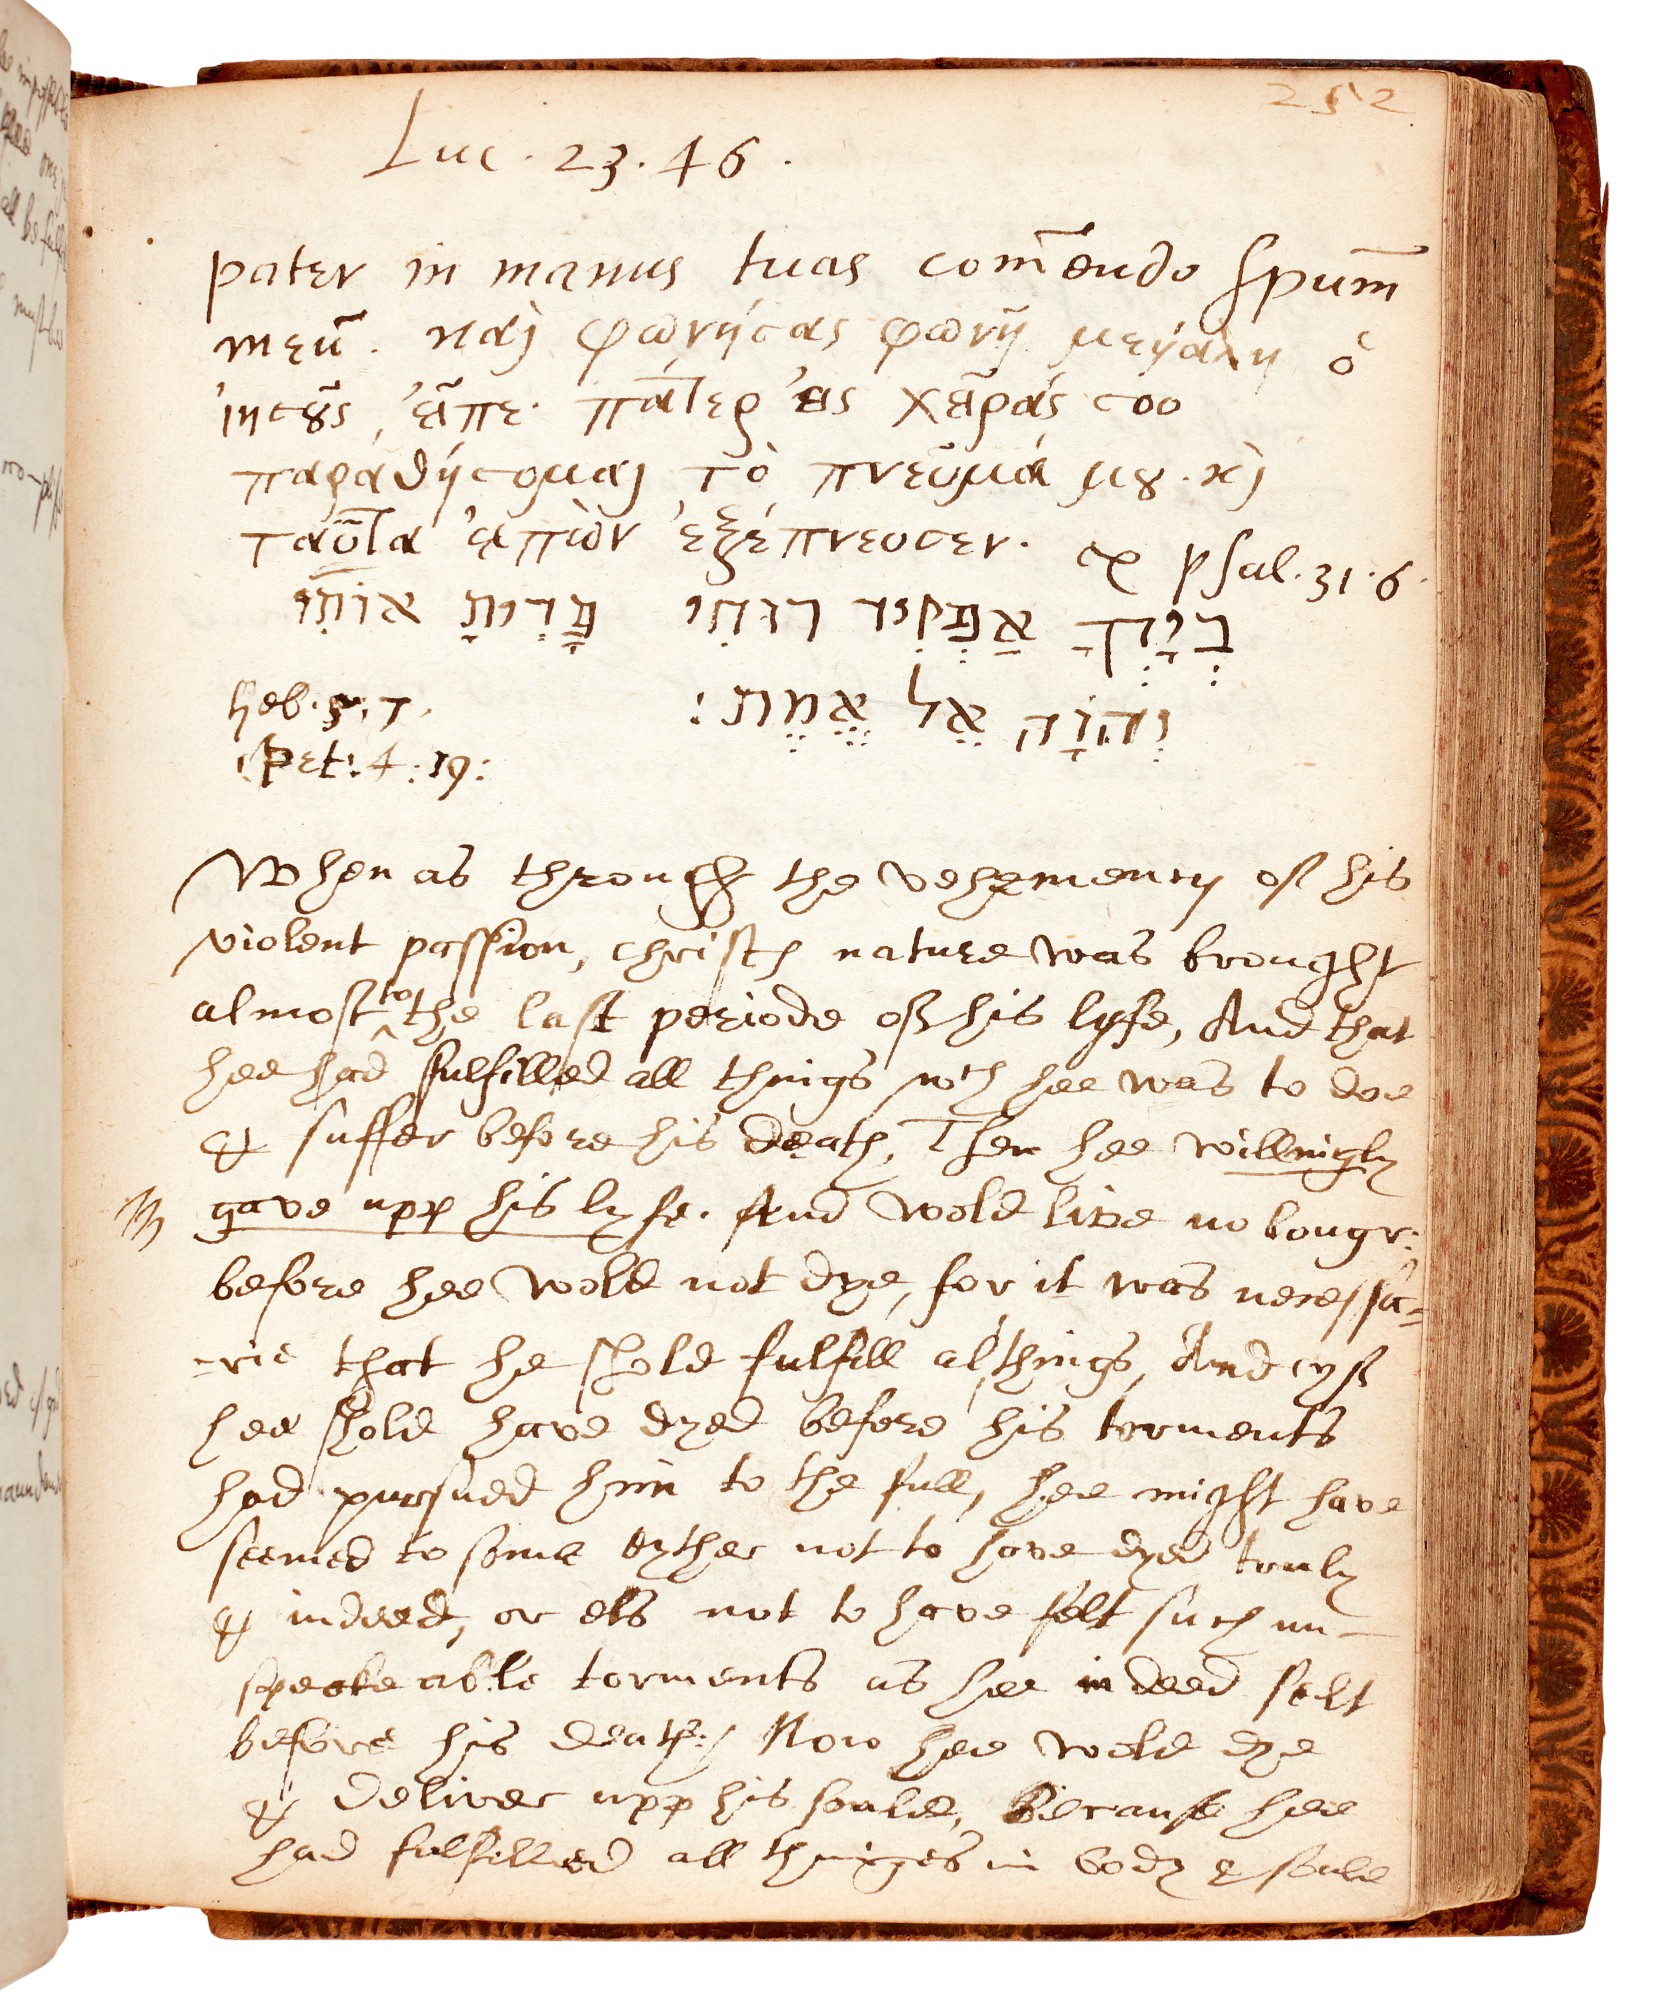 252
Luc . 23 . 46 .
pater in manus tuas com̄endo spum̄
meū . καὶ φωνήσας φωνῇ μεγάλῃ ὁ
ἰησοῦς , εἶπε . πάτερ εἰς χεῖράς σου
παραθήσομαι τὸ πνεῦμά μου . κὶ
ταῦτα εἰπὼν ἐξέπνευσεν . ex psal . 31 . 6 .
בְּיָדְךָ אַפְקִיד רוּחִי פָּדִיתָ אוֹתִי
יְהוָֹה אֵל אֱמֶת :
heb . 5 . 7 .
1 Pet : 4 : 19 :
When as through the vehemency off his
violent passion, christs nature was brought
almost to the last periode off his lyfe, And that
hee had fulfilled all things wch hee was to doe
& suffer before his death, Then hee willingly
gave upp his lyfe . And wold live no longr :
before hee wold not dye, for it was necessa=
=rie that he shold fulfill al things, And yff
hee shold have dyed before his torments
had pursued him to the full, hee might have
seemed to some eyther not to have dyed truly
& indeed, or els not to have felt such un-
speakeable torments as hee indeed felt
before his death :/ Now hee wold dye
& deliver upp his soule, Because hee
had fulfilled all thinges in body & soule